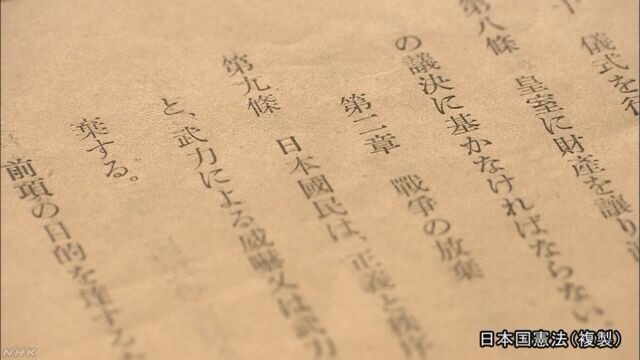 儀式を行
第八條 皇室に財産を讓り
の議決に基かなければならない。
第二章 戰爭の放棄
第九條 日本國民は、正義と秩序
と、武力による威嚇又は武力
棄する。
前項の目的を達する
日本国憲法(複製)
NHK